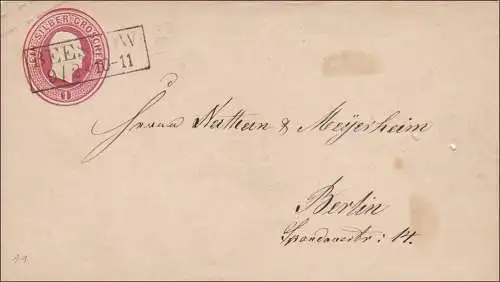 EIN SILBER GROSCHEN
BEESKOW
10-11
1
Herren Nathan & Meyerheim
Berlin
Spandauerstr: 14.